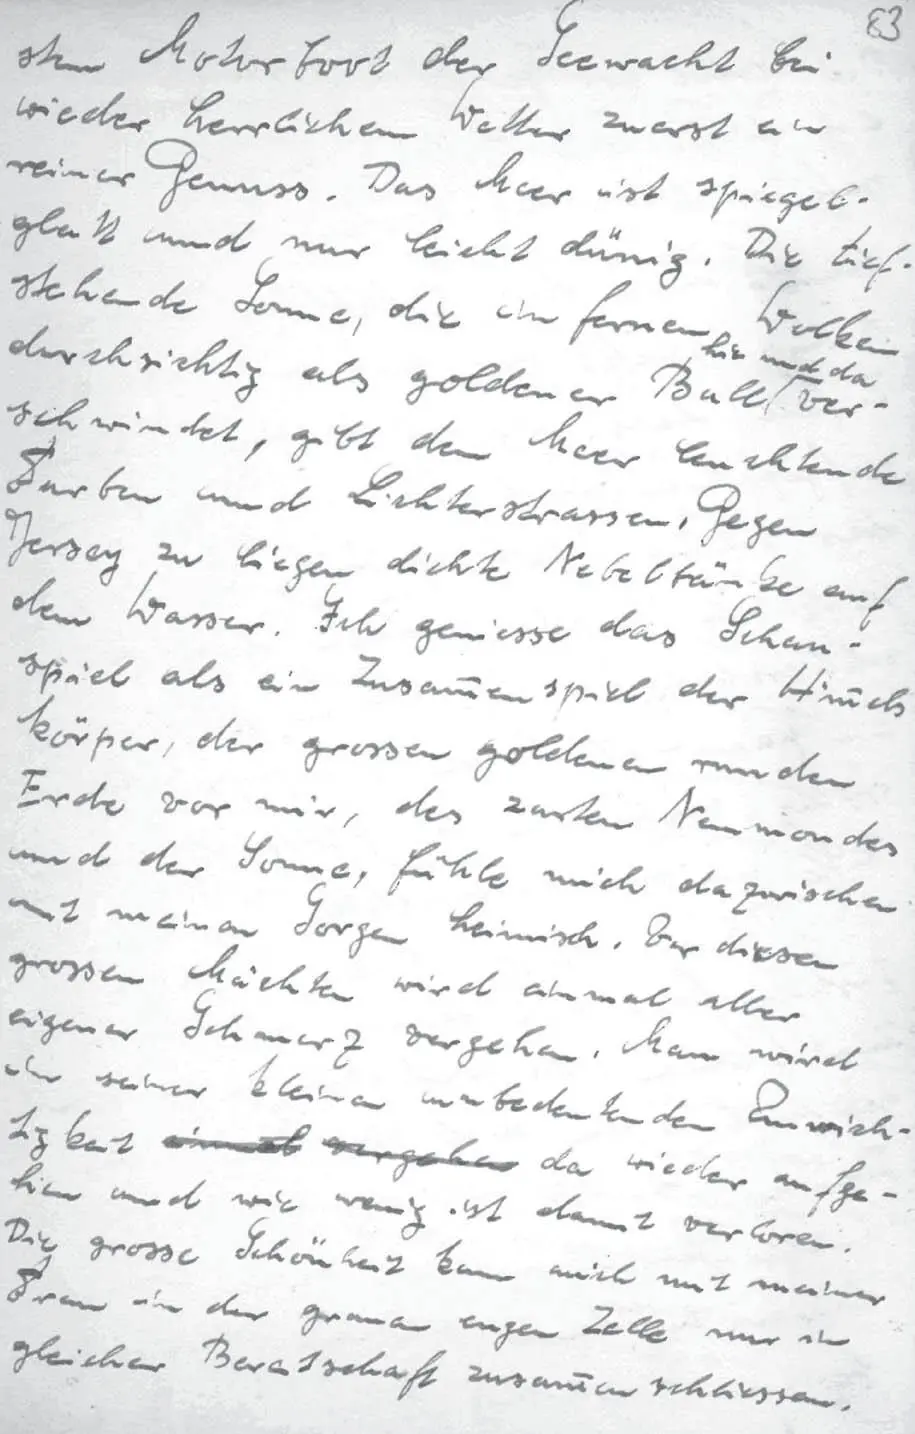 83
sten Motorboot der Seewacht bei
wieder herrlichem Wetter zuerst ein
reiner Genuss. Das Meer ist spiegel-
glatt und nur leicht dünig. Die tief-
stehende Sonne, die in fernen Wolken
durchsichtig als goldener Ball hie und da ver-
schwindet, gibt dem Meer leuchtende
Farben und Lichterstrassen. Gegen
Jersey zu liegen dichte Nebelbänke auf
dem Wasser. Ich geniesse das Schau-
spiel als ein Zusam̄enspiel der Him̄els
körper, der grossen goldenen runden
Erde vor mir, des zarten Neumondes
und der Sonne, fühle mich dazwischen
mit meinen Sorgen heimisch. Vor diesen
grossen Mächten wird einmal aller
eigener Schmerz vergehen. Man wird
in seiner kleinen unbedeutenden Unwich-
tigkeit einmal vergehen da wieder aufge-
hen und wie wenig ist damit verloren.
Die grosse Schönheit kann mich mit meiner
Frau in der grauen engen Zelle nur in
gleicher Bereitschaft zusam̄enschliessen.